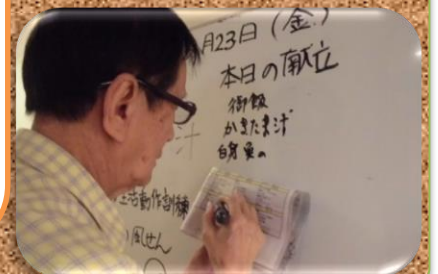 月23日(金)
本日の献立
御飯
かきたま汁
白身魚の
汁
生活動作訓練
風せん